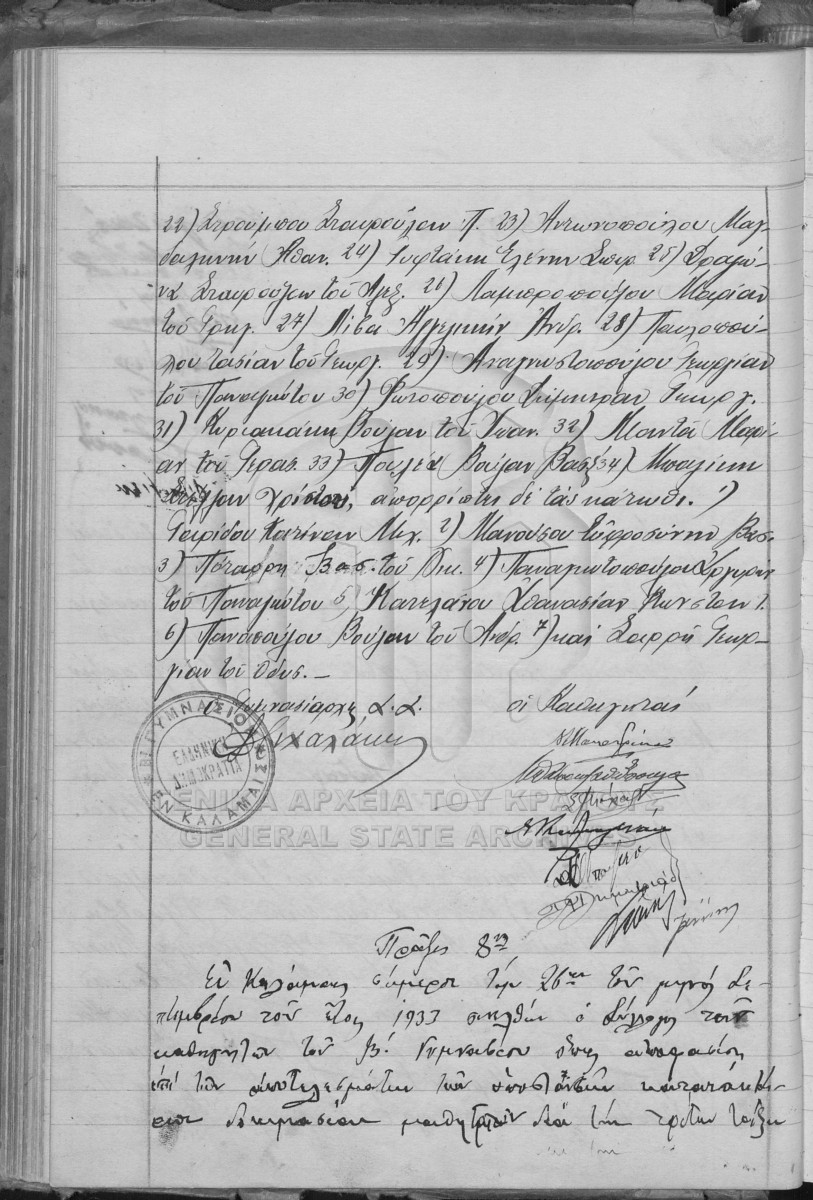 22) Στρούμπου Σταυρούλαν Π. 23) Αντωνοπούλου Μαγ-
δαληνήν Αθαν. 24) Γυφτάκη Ελένην Σπυρ. 25) Δραγώ-
να Σταυρούλαν τοῦ Αλεξ. 26) Λαμπροπούλου Μαρίαν
τοῦ Γρηγ. 27) Λίβα Αγγελικήν Ανδρ. 28) Παυλοπού-
λου Τασίαν τοῦ Γεωργ. 29) Αναγνωστοπούλου Γεωργίαν
τοῦ Παναγιώτου 30) Φωτοπούλου Δήμητραν Γεωργ.
31) Κυριακάκη Βούλαν τοῦ Ιωαν. 32) Μαντᾶ Μαρί-
αν τοῦ Γερασ. 33) Πουλέα Βούλαν Βασ. 34) Μπαλίκη
Χρίστου, απορρίπτει δὲ τὰς κάτωθι. 1)
Γαιρίδου Κατίναν Μιχ. 2) Μανούσου Εὐφροσύνην Βασ.
3) Πόταρη Βασ. τοῦ Νικ. 4) Παναγιωτοπούλου Αργυρήν
τοῦ Παναγιώτου 5) Κατελάνου Αθανασίαν Κωνσταντ.
6) Παναπούλου Βούλαν τοῦ Ανδρ. 7) καὶ Σαρρῆ Γεωρ-
γίαν τοῦ Οδυσ. —
Ὁ Γυμνασιάρχης Α.Α. οἱ Καθηγηταί
Β! ΓΥΜΝΑΣΙΟΝ
ΕΝ ΚΑΛΑΜΑΙΣ
ΕΛΛΗΝΙΚΗ
ΔΗΜΟΚΡΑΤΙΑ
ΓΕΝΙΚΑ ΑΡΧΕΙΑ ΤΟΥ ΚΡΑΤΟΥΣ
GENERAL STATE ARCHIVES
Πρᾶξις 8η
Ἐν Καλάμαις σήμερον τὴν 26ην τοῦ μηνὸς Σε-
πτεμβρίου τοῦ ἔτους 1933 συνελθὼν ὁ Σύλλογος τῶν
καθηγητῶν τοῦ Β! Γυμνασίου ὅπως ἀποφασίσῃ
ἐπὶ τῶν ἀποτελεσμάτων τῶν ὑποστάντων κατατακτή-
ριον δοκιμασίαν μαθητριῶν διὰ τὴν τρίτην τάξιν